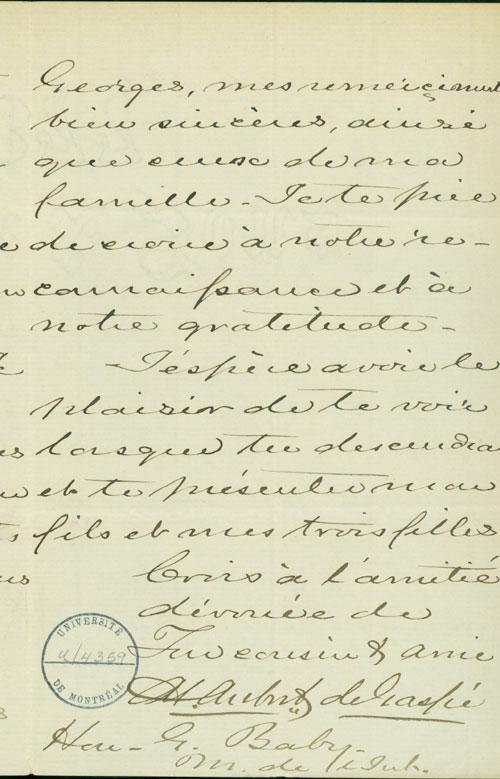 Georges, mes remerciments
bien sincères, ainsi
que ceux de ma
famille - Je te prie
de croire à notre re-
connaissance et à
notre gratitude -
J'éspère avoir le
plaisir de te voir
lorsque tu descendra
et te présenter mon
fils et mes trois filles
Crois à l'amitié
dévouée de
Ton cousin & ami
UNIVERSITÉ
U/4359
DE MONTRÉAL
Aubert de Gaspé
Hon - G. Baby
M. de